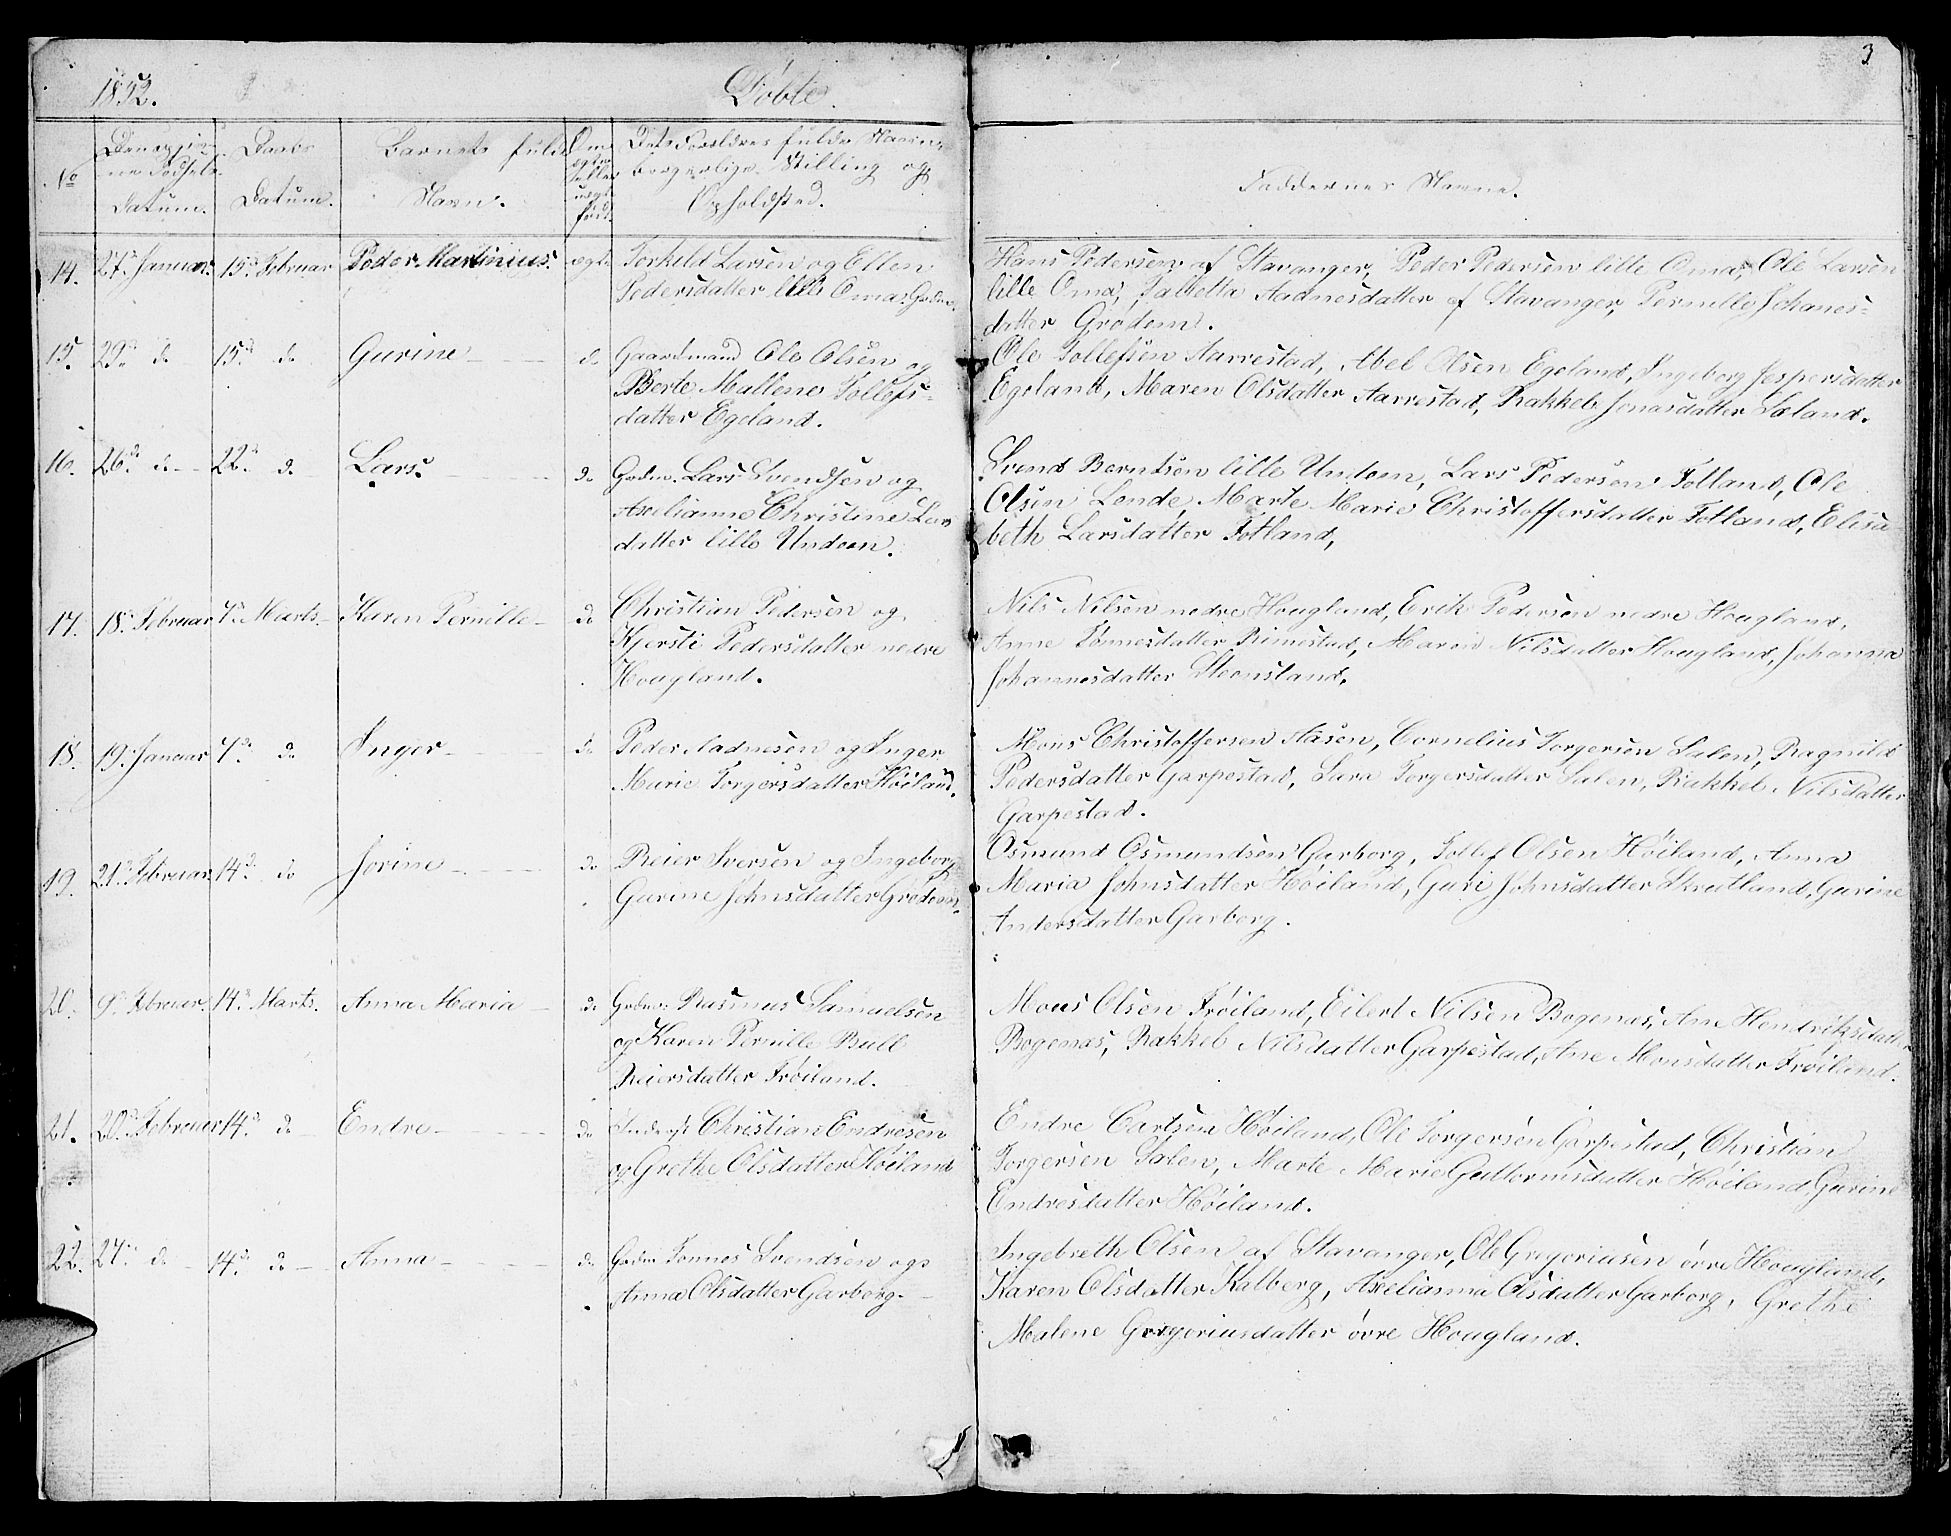 3
1852.
Døbte.
No
Datum.
Daabs
Datum.
Barnets fulde
Navn.
Om
ægte
eller
uægte
født.
Dets Forældres fulde Navn,
borgerlige Stilling og
Opholdsted.
Faddernes Navne.
14. 27d Januar. 15d Februar Peder Martinius. ægte Torkild Larsen og Ellen
Pedersdatter lille Oma. Gdm.
Hans Pedersen af Stavanger, Peder Pedersen lille Oma, Ole Larsen
lille Oma, Aadnesdatter af Stavanger, Pernille Johanes-
datter Grødem.
15. 29d do 15d do Gurine do Gaardmand Ole Olsen og
Berte Mallene Tollefs-
datter Egeland.
Ole Tollefsen Aarrestad, Abel Olsen Egeland, Ingeborg Jespersdatter
Egeland, Maren Olsdatter Aarrestad, Rakkel Jonasdatter Læland.
16. 26d do 22d do Lars do Gdm. Lars Svendsen og
Axelianne Christine Lars
datter lille Undem.
Svend Berntsen lille Undem, Lars Pedersen Totland, Ole
Olsen Lende, Marte Marie Christoffersdatter Totland, Elisa-
beth Larsdatter Totland,
17. 18d Februar 7d Marts Karen Pernille do Christian Pedersen og
Kjersti Pedersdatter nedre
Hougland.
Nils Nilsen nedre Hougland, Erik Pedersen nedre Hougland,
Anne Tønnesdatter Rimestad, Maren Nilsdatter Hougland, Johanna
Johannesdatter Steensland.
18. 19d Januar 7d do Inger do Peder Aadnesen og Inger
Marie Torgersdatter Høiland.
Mons Christoffersen Aasen, Cornelius Torgersen Salen, Ragnild
Pedersdatter Garpestad, Sara Torgersdatter Salen, Rakkel Nilsdatter
Garpestad.
19. 21d Februar 14d do Jorine do Reier Iversen og Ingeborg
Gurine Johnsdatter Grødem.
Osmund Osmundsen Garborg, Tollef Olsen Høiland, Anna
Maria Johnsdatter Høiland, Guri Johnsdatter Skretland, Gurine
Andersdatter Garborg.
20. 9d Februar. 14d Marts. Anna Maria do Gdm: Rasmus Samuelsen
og Karen Pernille Bull
Reiersdatter Frøiland.
Mons Olsen Frøiland, Eilert Nilsen Bogenæs, Ane Hendriksdatter
Bogenæs, Rakkel Nilsdatter Garpestad, Ane Monsdatter Frøiland.
21. 20d Februar 14d do Endre do Inderst Christian Endresen
og Grethe Olsdatter Høiland
Endre Carlsen Høiland, Ole Torgersen Garpestad, Christian
Torgersen Salen, Marte Marie Guttormsdatter Høiland, Gurine
Endresdatter Høiland.
22. 24d do 14d do Anna do Gdm Tønnes Svendsen og
Anna Olsdatter Garborg.
Ingebreth Olsen af Stavanger, Ole Gregoriusen øvre Hougland,
Karen Olsdatter Kalberg, Axelianna Olsdatter Garborg, Grethe
Malene Gregoriusdatter øvre Hougland.